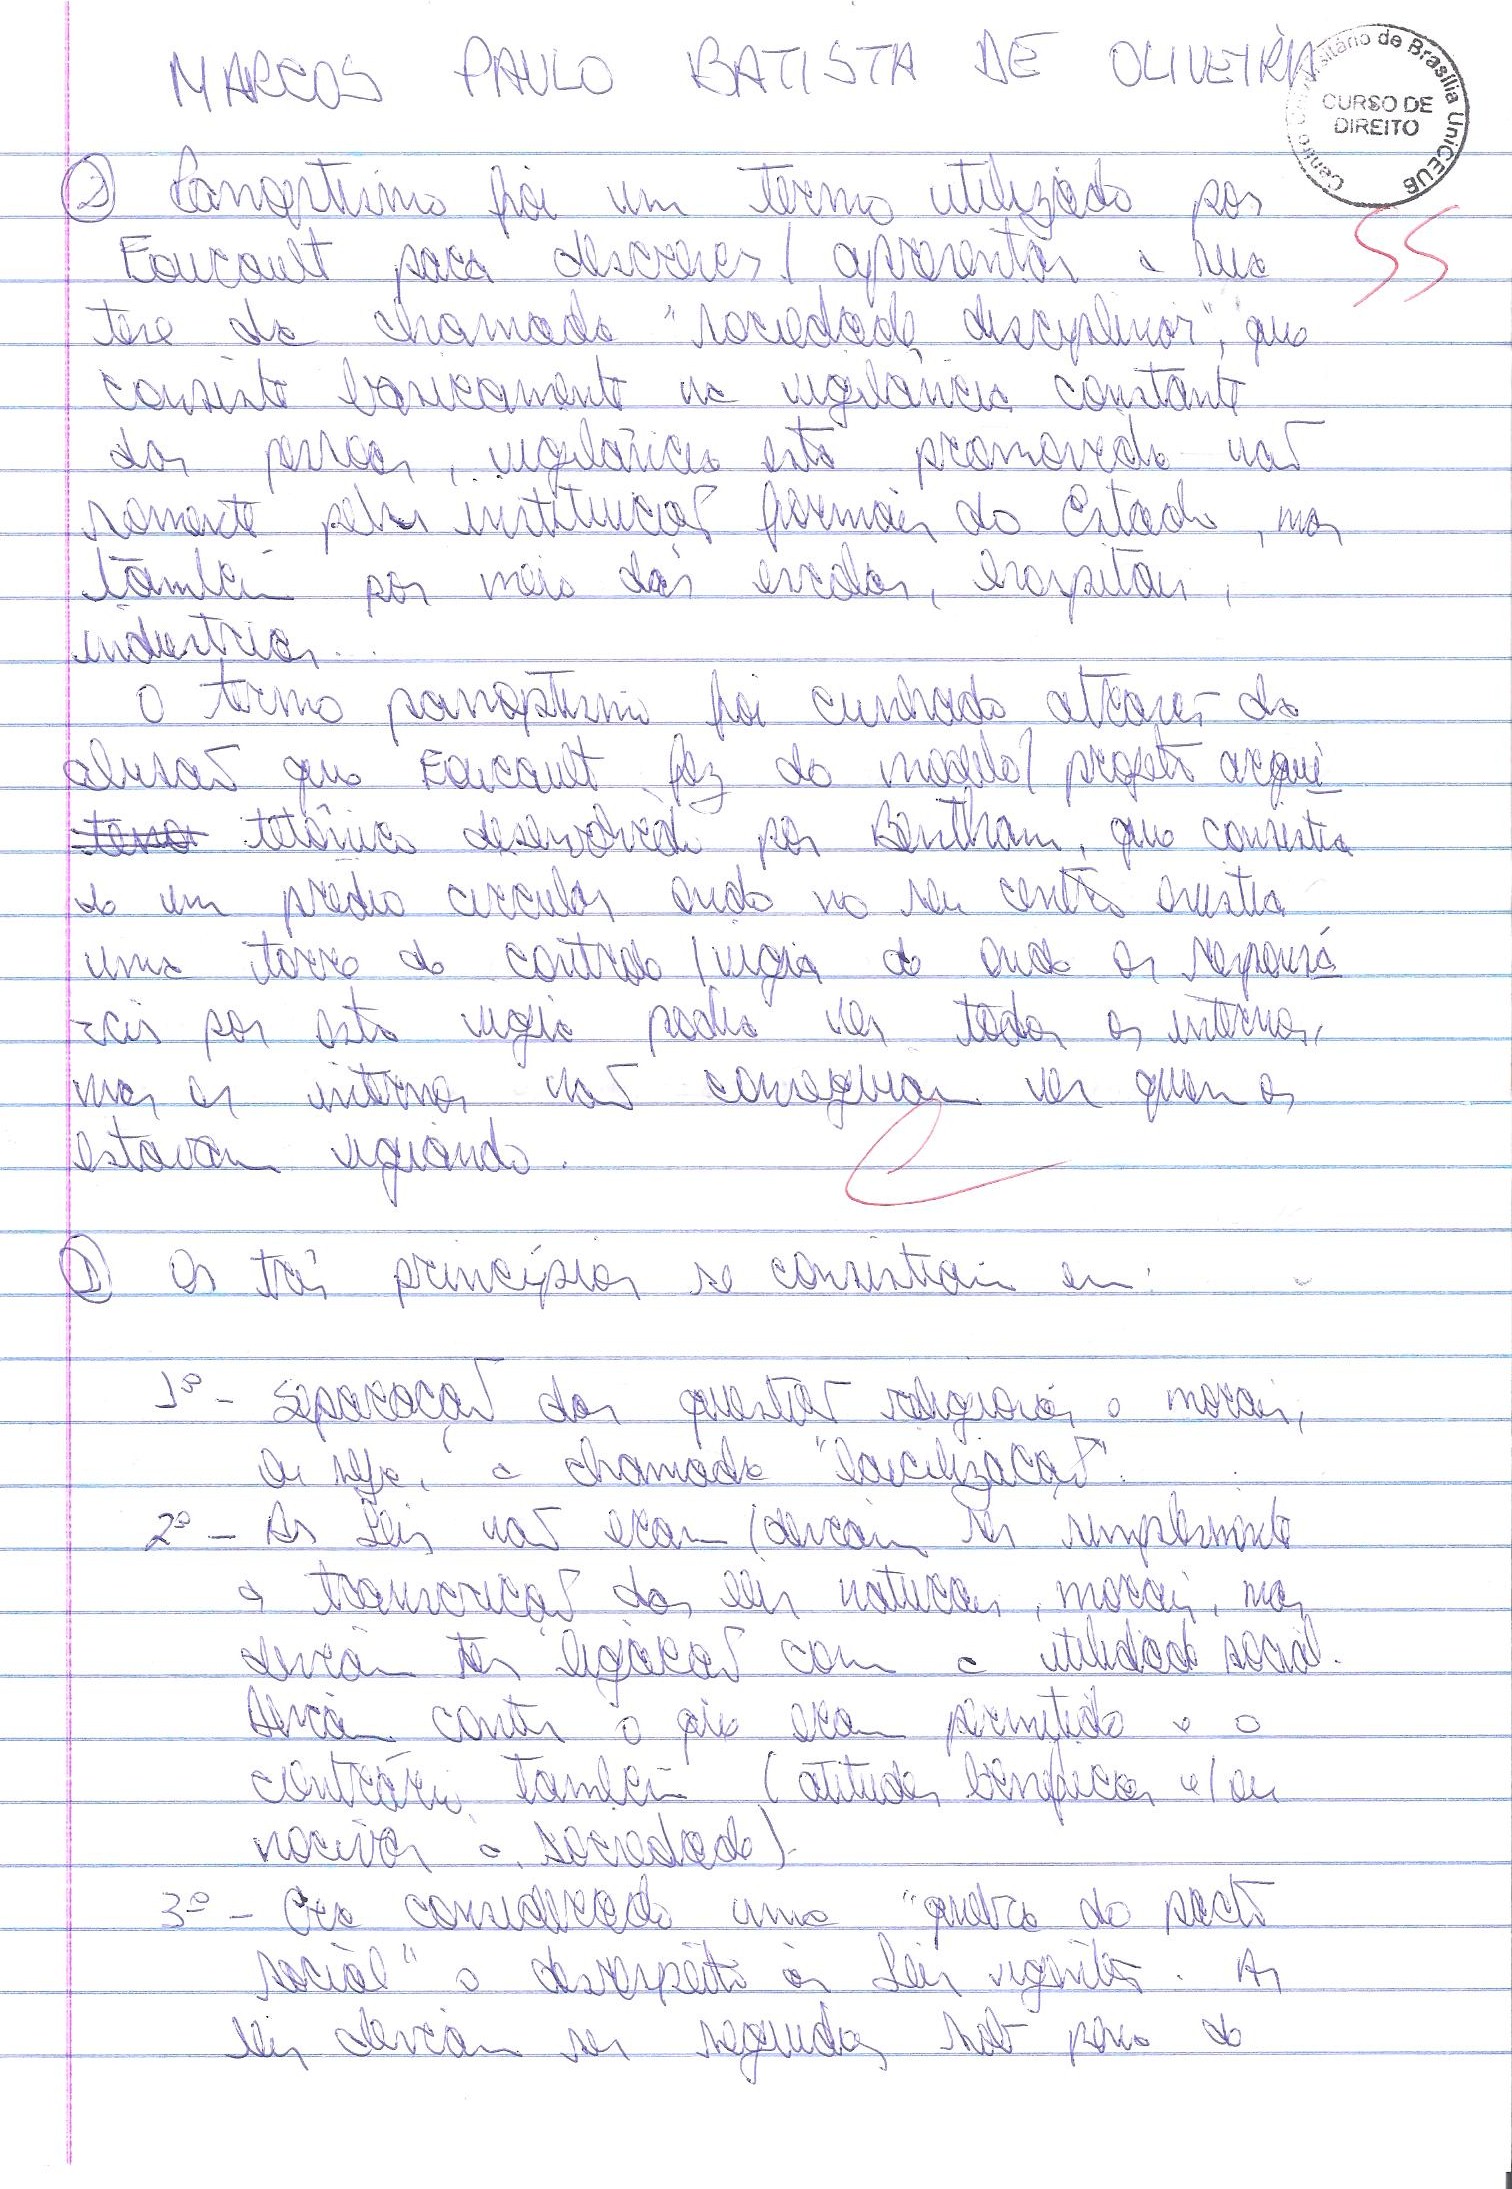 MARCOS PAULO BATISTA DE OLIVEIRA
Centro Universitário de Brasília UniCEUB
CURSO DE
DIREITO
2 Panoptismo foi um termo utilizado por
SS
Foucault para descrever / apresentar a sua
tese da chamada "sociedade disciplinar", que
consiste basicamente na vigilância constante
das pessoas, vigilância esta promovida não
somente pelas instituições formais do Estado, mas
também por meio das escolas, hospitais,
indústrias...
O termo panoptismo foi cunhado através da
alusão que Foucault fez do modelo/ projeto arqui
tetônico desenvolvido por Bentham, que consistia
de um prédio circular onde no seu centro existia
uma torre de controle / vigia de onde os responsá
veis por esta vigia podia ver todos os internos,
mas os internos não conseguiam ver quem os
estavam vigiando.
1 Os três princípios se consistiam em:
1º - Separação das questões religiosas e morais,
ou seja, a chamada "laicização".
2º - As Leis não eram /deviam ser simplesmente
a transcrição das leis naturais, morais, mas
deviam ter ligação com a utilidade social.
Deviam conter o que eram permitido e o
contrário também (atitudes benéficas e/ou
nocivas a sociedade).
3º - Era considerado uma "quebra do pacto
social" o desrespeito às Leis vigentes. As
leis deviam ser seguidas sob pena de